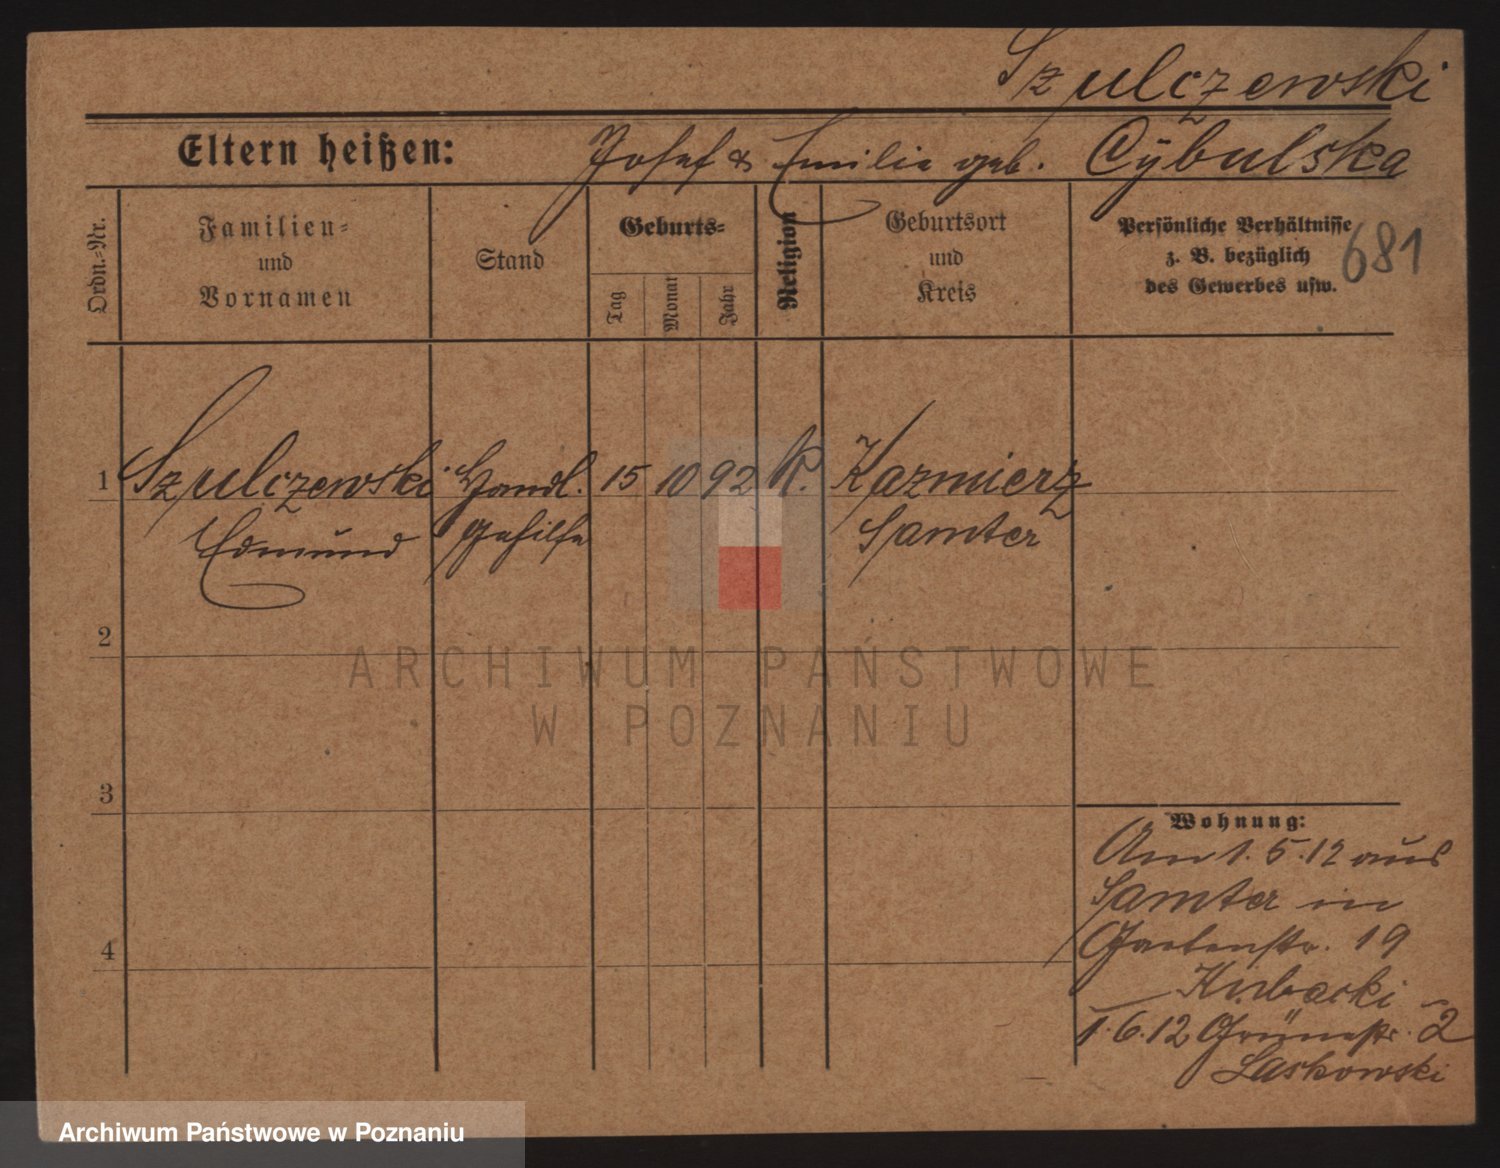 Szulczewski
Eltern heißen: Josef & Emilie geb. Cÿbulska
Ordn.-Nr.
Familien-
und
Vornamen
Stand
Geburts-
Tag
Monat
Jahr
Religion
Geburtsort
und
Kreis
Persönliche Verhältnisse
z. B. bezüglich
des Gewerbes usw.
681
1 Szulczewski Handl. 15 10 92 K. Kazmierz
Edmund gehilfe Samter
2
3
4
Wohnung:
Am 1.5.12 aus
Samter in
Gartenstr. 19
Kubacki
1.6.12 Grünestr. 2
Laskowski
ARCHIWUM PAŃSTWOWE
W POZNANIU
Archiwum Państwowe w Poznaniu